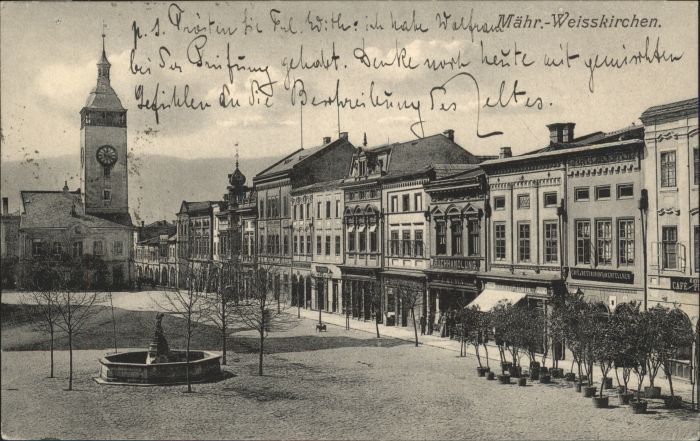 Mähr.-Weisskirchen.
P.S. Trösten Sie Frl. Edith: ich habe Wolfram
bei der Prüfung gehabt. Denke noch heute mit gemischten
Gefühlen an die Beschreibung des Zeltes.
CAFÉ